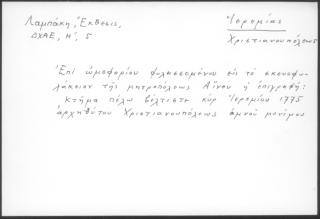 Λαμπάκη, Ἔκθεσις,
ΔΧΑΕ, Η´, 5
Ἱερεμίας
Χριστιανουπόλεως
Ἐπὶ ὠμοφορίου φυλασσομένου εἰς τὸ σκευοφυ-
λάκιον τῆς μητροπόλεως Αἴνου ἡ ἐπιγραφή:
κτῆμα πέλω βέλτιστε κύρ Ἱερεμίου 1775
ἀρχιθύτου Χριστιανουπόλεως ἀμνοῦ μονίμου